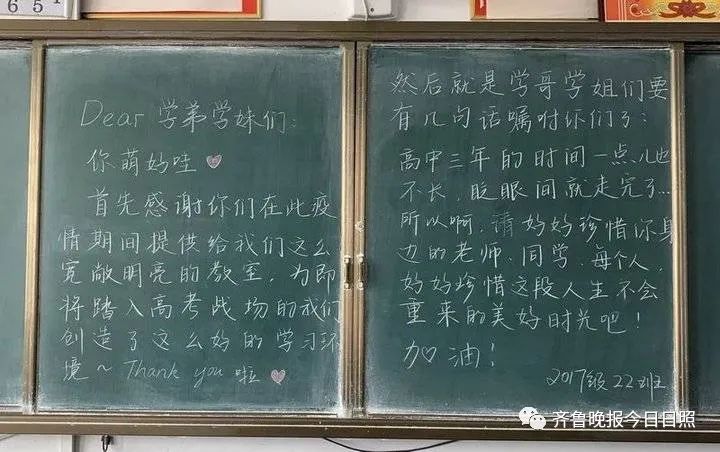 651
Dear 学弟学妹们:
你萌好哇♡
首先感谢你们在此疫
情期间提供给我们这么
宽敞明亮的教室,为即
将踏入高考战场的我们
创造了这么好的学习环
境~Thank you 啦♡
然后就是学哥学姐们要
有几句话嘱咐你们了:
高中三年的时间一点儿也
不长,眨眼间就走完了...
所以啊,请好好珍惜你身
边的老师、同学、每个人,
好好珍惜这段人生不会
重来的美好时光吧!
加油!
2017级22班
齐鲁晚报今日日照